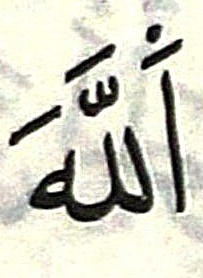 اَللّٰهَ